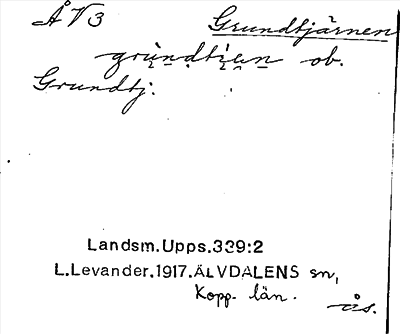 ÅV3 Grundtjärnen
grùndtìan ob.
Grundtj.
Landsm.Upps.339:2
L.Levander.1917.ÄLVDALENS sn,
Kopp. län.
ås.